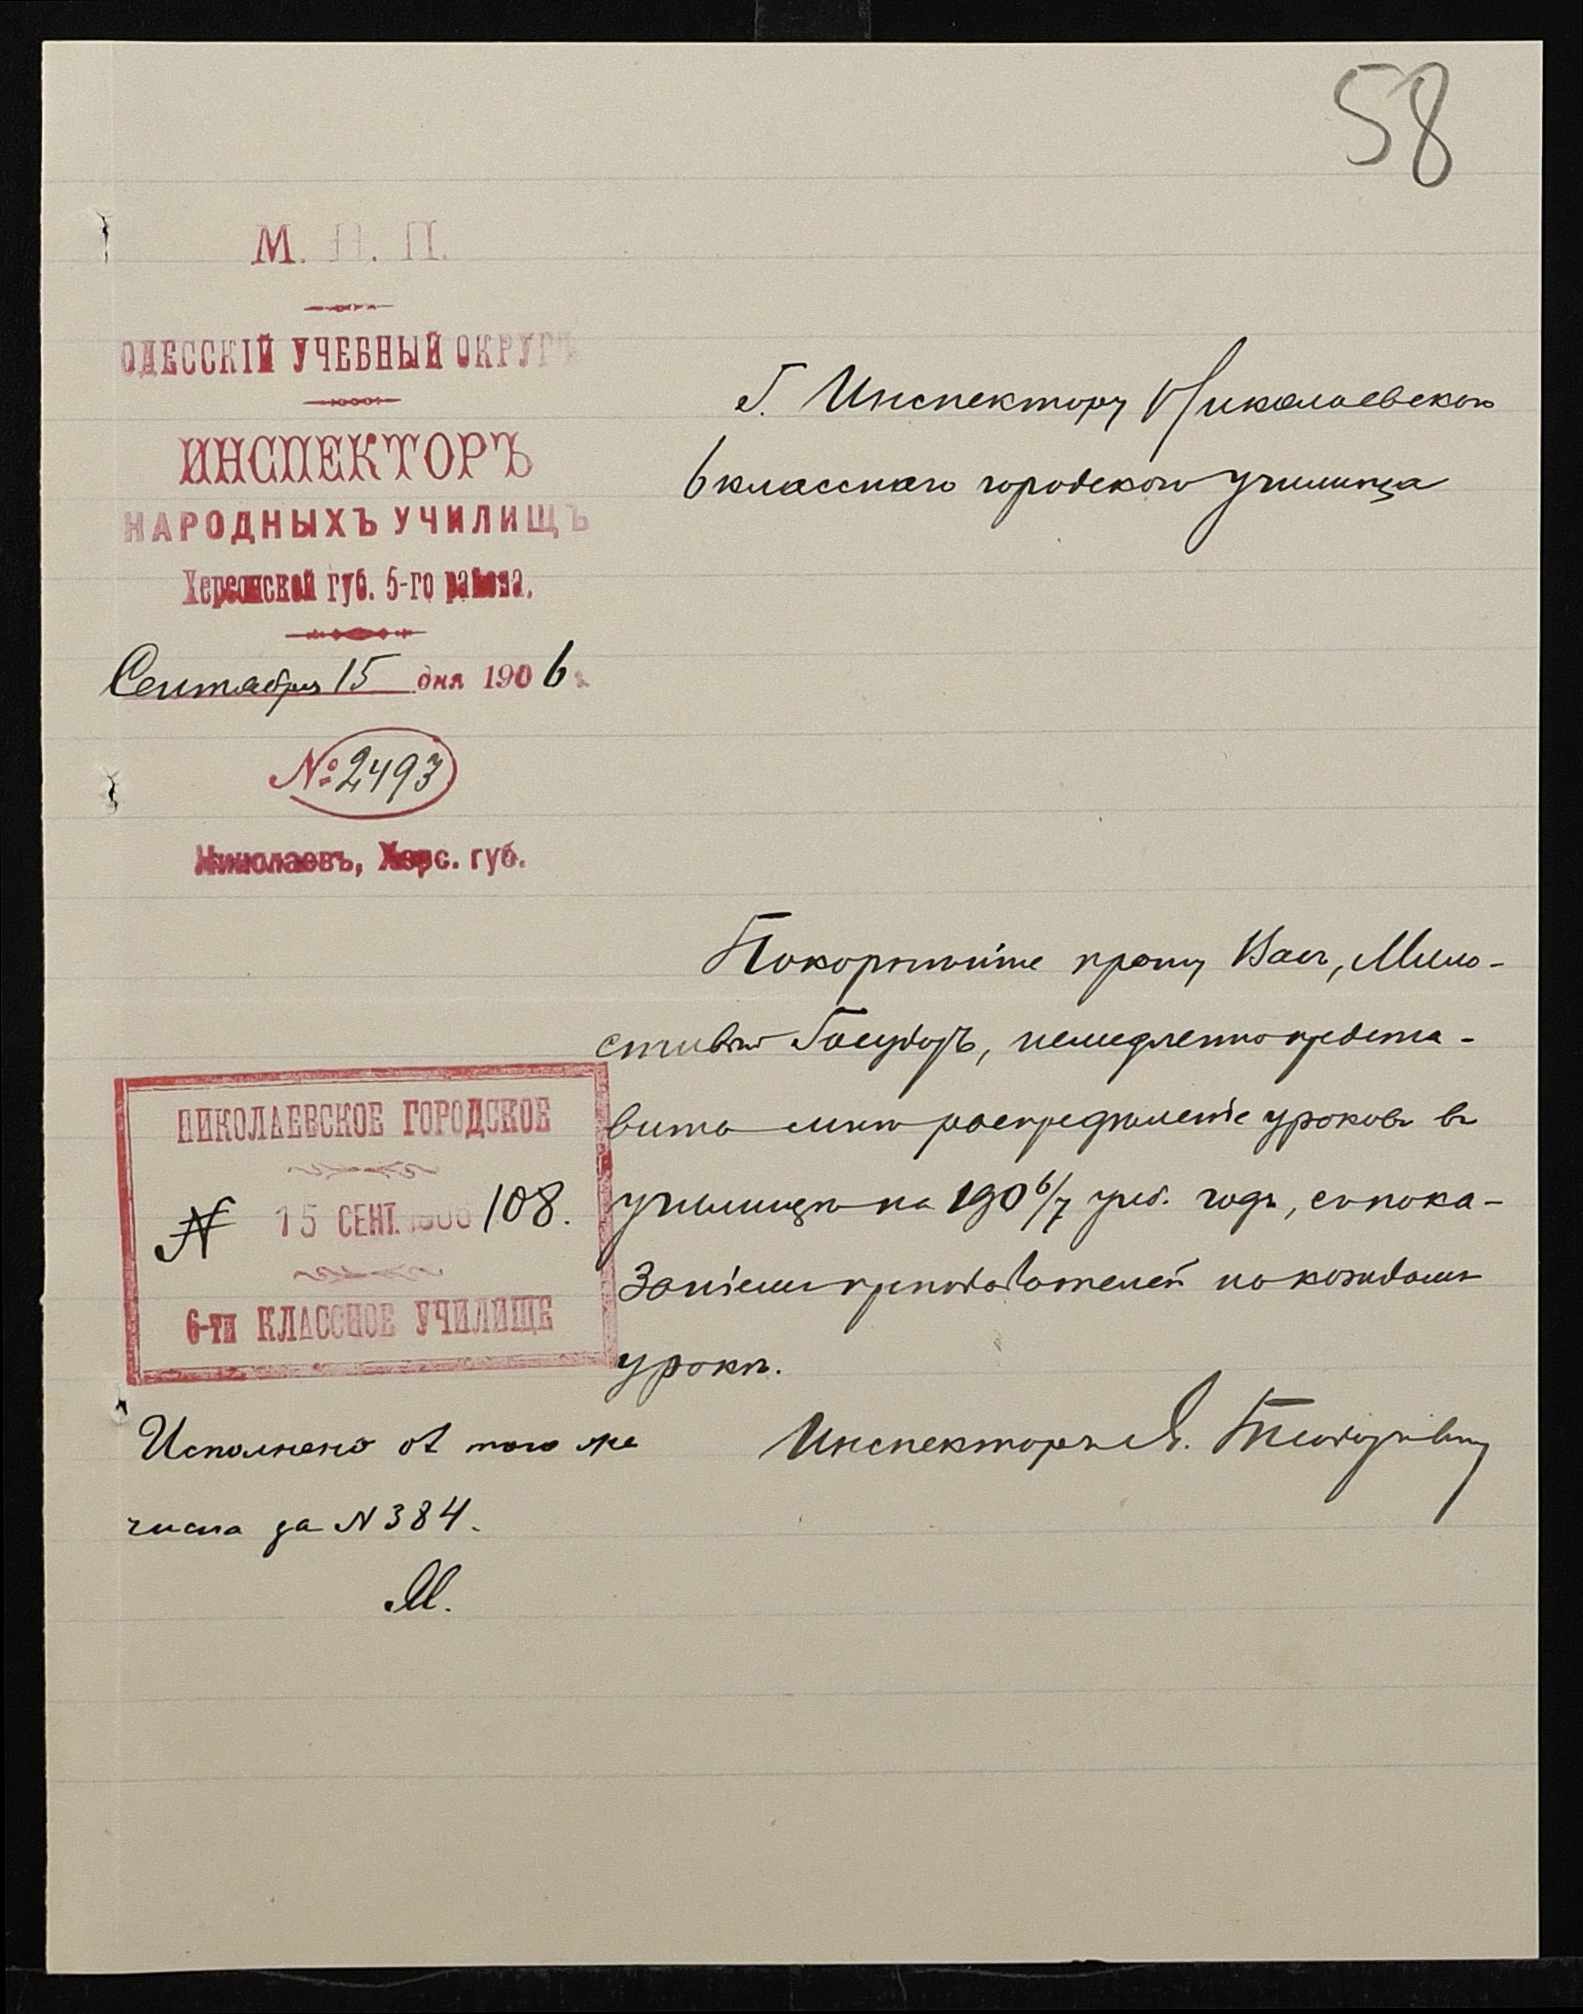 58
М. Н. П.
ОДЕССКІЙ УЧЕБНЫЙ ОКРУГЪ
ИНСПЕКТОРЪ
НАРОДНЫХЪ УЧИЛИЩЪ
Херсонской губ. 5-го района.
Сентября 15 дня 1906 г.
№ 2493
Николаевъ, Херс. губ.
Г. Инспектору Николаевскаго
6 класснаго городского училища
Покорнѣйше прошу Васъ, Мило-
стивый Государь, немедленно предста-
вить мнѣ распредѣленіе уроковъ въ
училищѣ на 1906/7 учеб. годъ, съ пока-
заніемъ преподавателей по каждому
уроку.
Инспекторъ
НИКОЛАЕВСКОЕ ГОРОДСКОЕ
N 15 СЕНТ. 1906 108.
6-ти КЛАССНОЕ УЧИЛИЩЕ
Исполнено от того же
числа за N 384.
М.